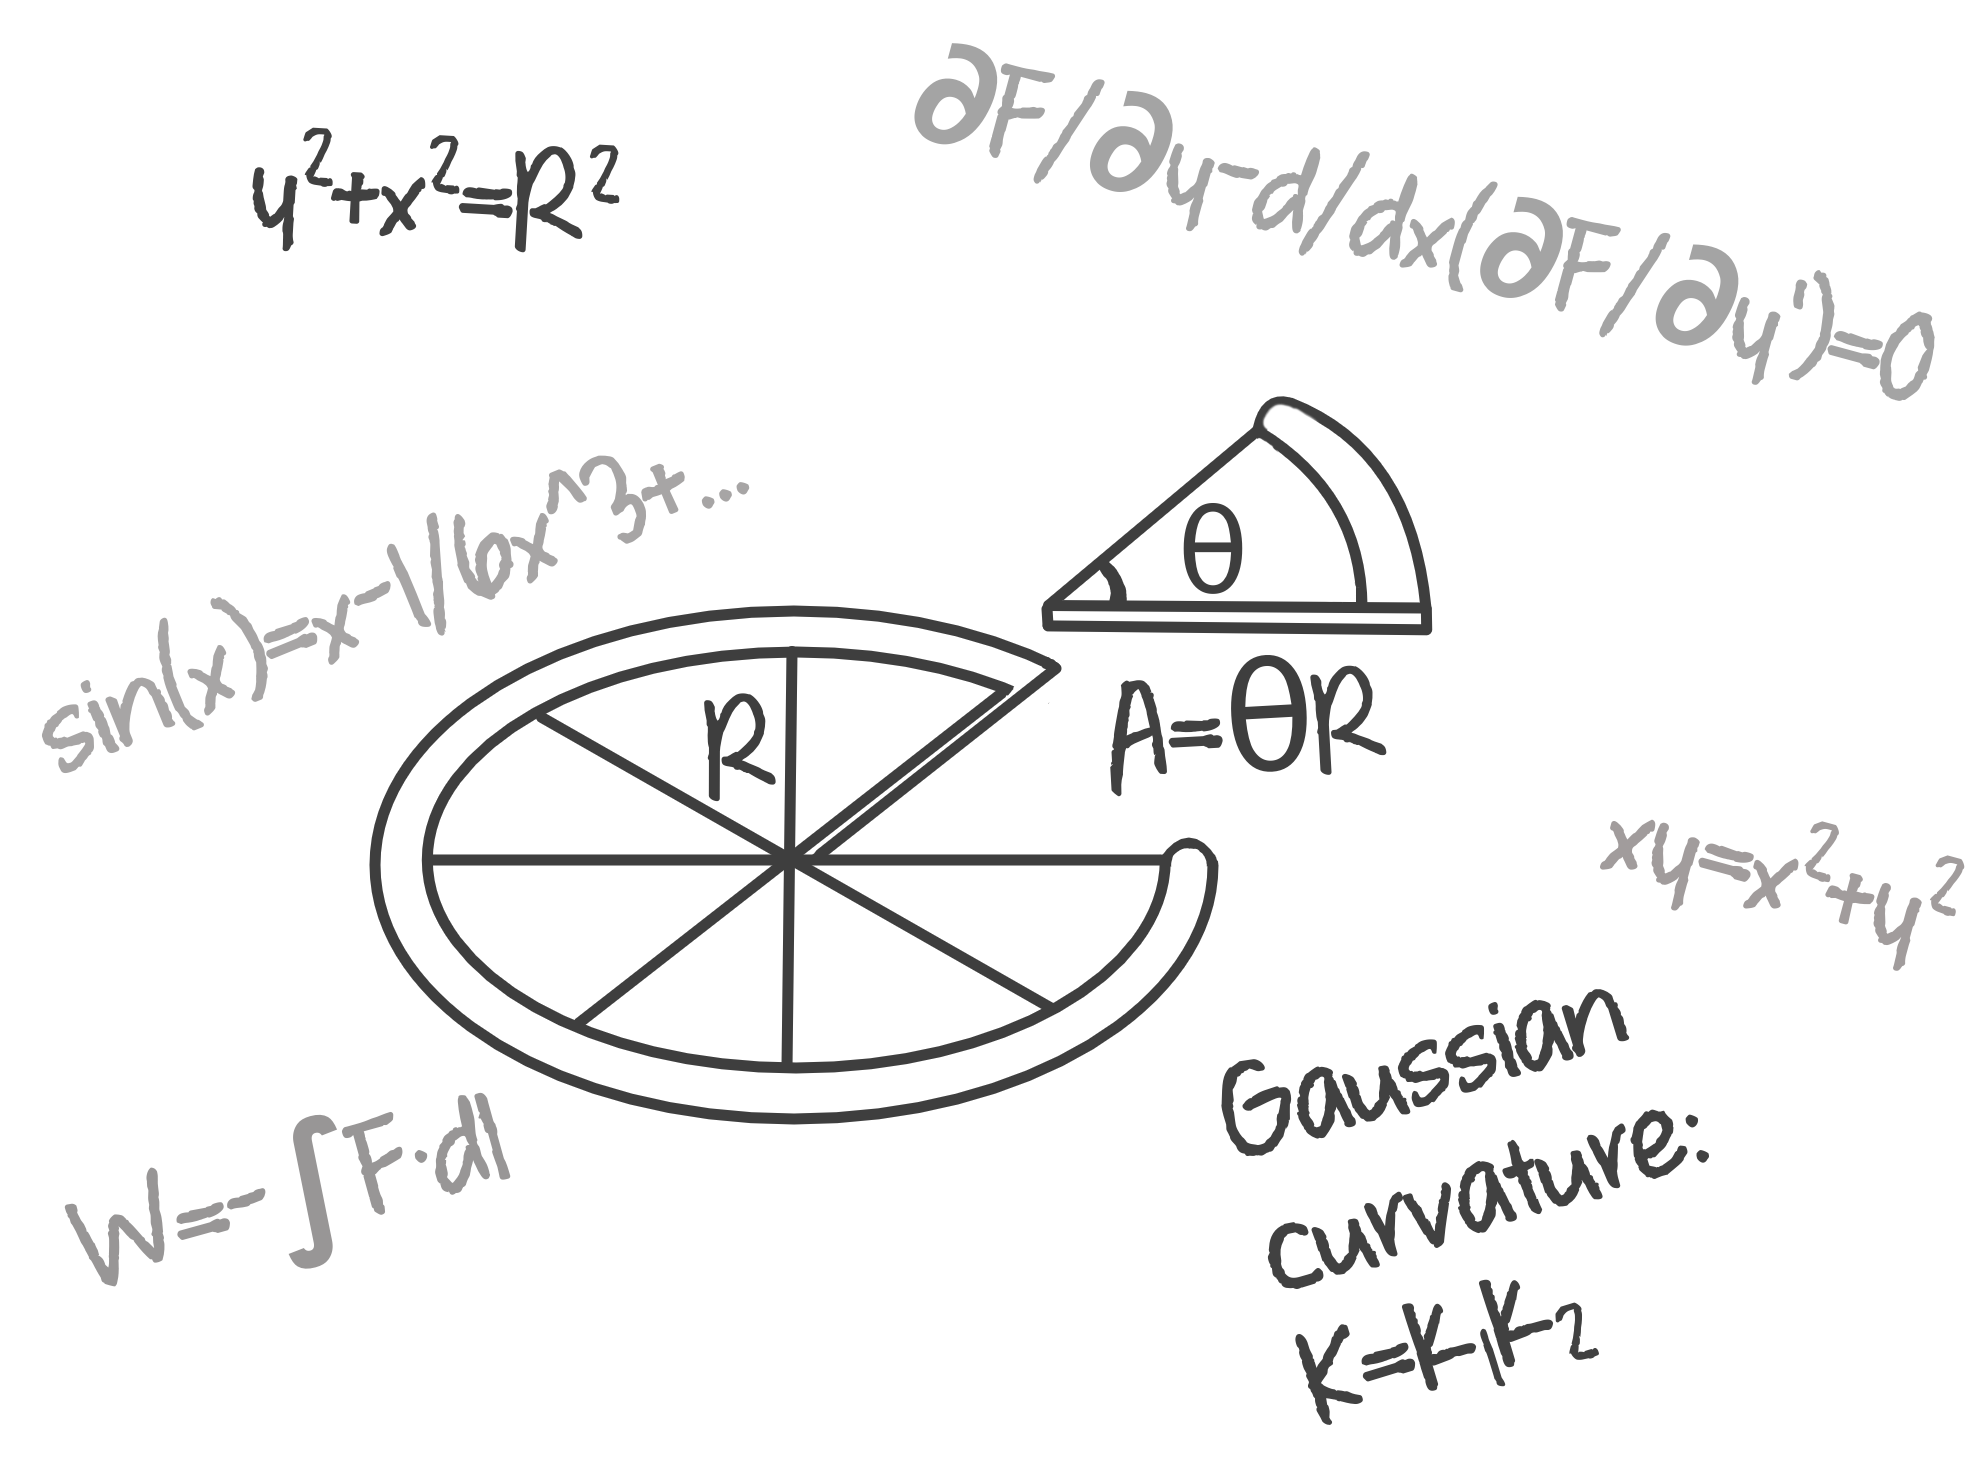 y²+x²=R²
∂F/∂y-d/dx(∂F/∂y')=0
sin(x)=x-1/6x^3+...
θ
R
A=θR
xy=x²+y²
Gaussian
curvature:
K=K₁K₂
W=-∫F·dl